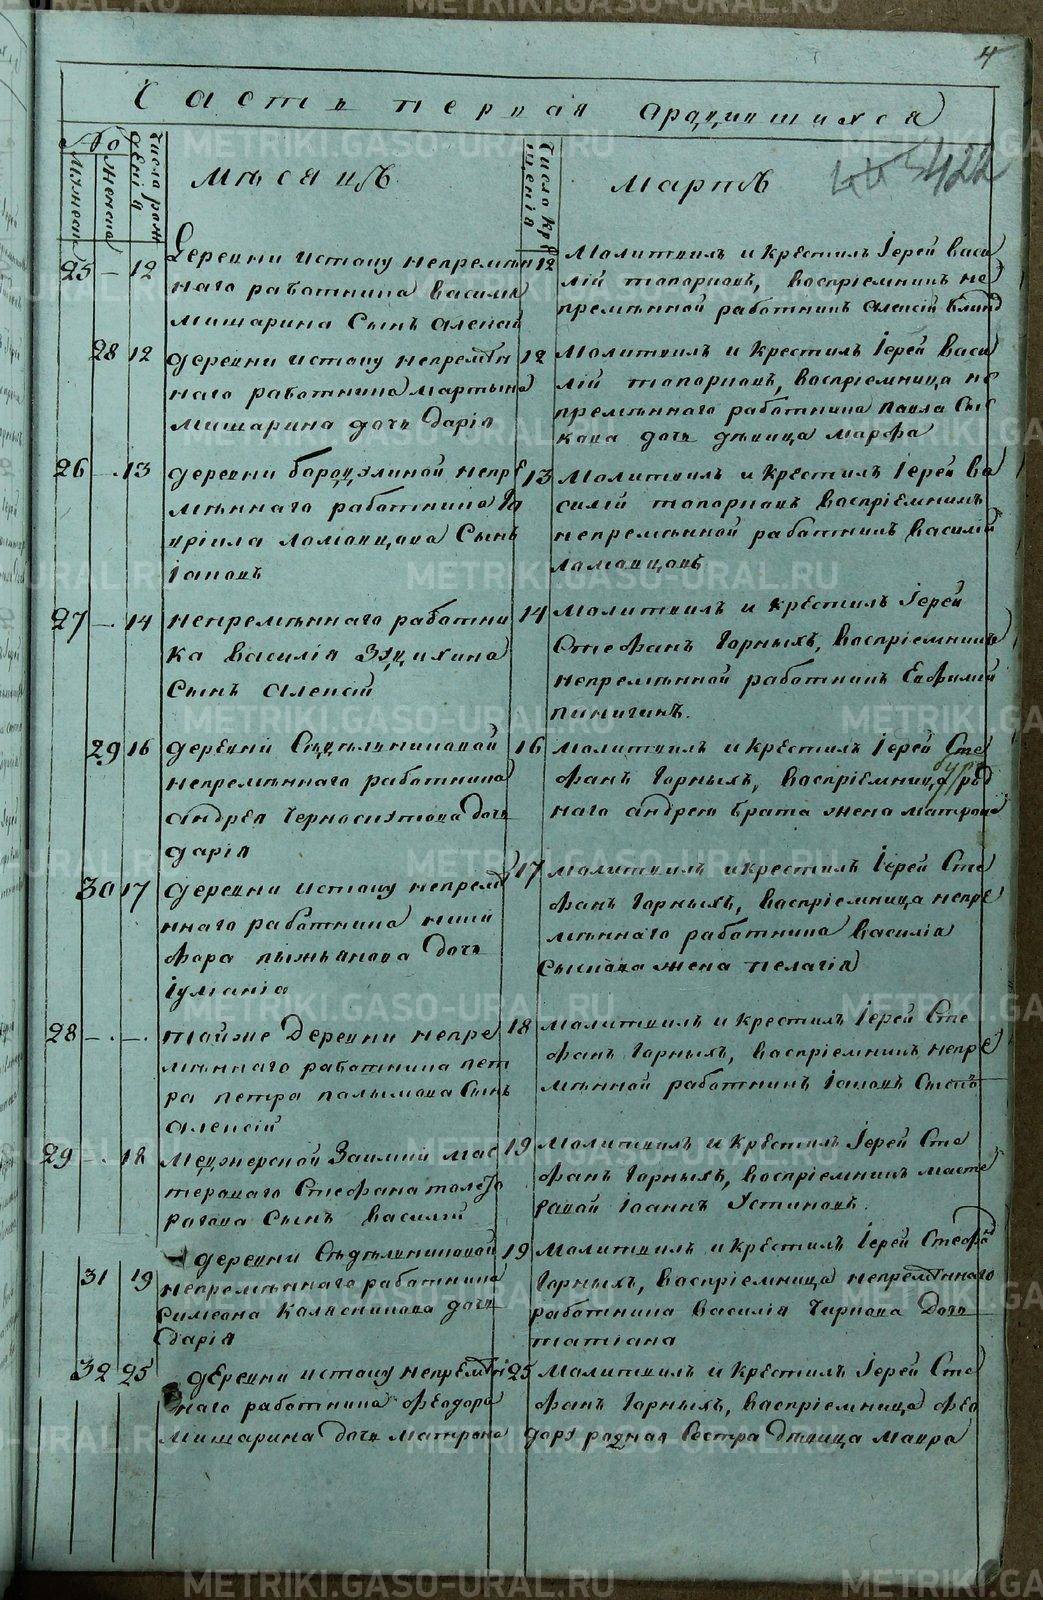 4
Часть первая о родившихся
422
№
Мужеска
Женска
Числа рож
денія
Месяцъ
Число кре
щенія
Мартъ
25 - 12 Деревни Истоку непремен
наго работника Василія
Мишарина Сынъ Алексій
12 Молитвилъ и Крестилъ Іерей Васи
лій Топорковъ, Воспріемникъ не
премѣнной работникъ Алексій
28 12 деревни Истоку непремѣн
наго работника Мартына
Мишарина дочь Дарія
12 Молитвилъ и Крестилъ Іерей Васи
лій Топорковъ, Воспріемница не
премѣннаго работника Павла Сыс
кова дочь девица Марфа
26 - 13 деревни непре
мѣннаго работника Га
вріила Ломовцова Сынъ
Іаковъ
13 Молитвилъ и Крестилъ Іерей Ва
силій Топорковъ Воспріемникъ
непремѣнной работникъ Василій
Ломовцовъ
27 - 14 непремѣннаго работни
ка Василія
Сынъ Алексій
14 Молитвилъ и крестилъ Іерей
Стефанъ Горныхъ, Воспріемникъ
непремѣнной работникъ Евфимій
Пинигинъ.
29 16 деревни Седѣльниковой
непремѣннаго работника
Андрея Черноскутова дочь
Дарія
16 Молитвилъ и крестилъ Іерей Сте
фанъ Горныхъ, Воспріемница род
наго Андрею брата жена Матрона
30 17 деревни Истоку непремѣ
ннаго работника Ники
фора Пьянкова Дочь
Іуліанія
17 Молитвилъ и крестилъ Іерей Сте
фанъ Горныхъ, Воспріемница непре
мѣннаго работника Василія
Сыскова жена Пелагія
28 - - Тойже Деревни непре
мѣннаго работника Пет
ра Петра Полымова Сынъ
Алексій
18 Молитвилъ и крестилъ Іерей Сте
фанъ Горныхъ, Воспріемникъ непре
мѣнной работникъ Іаковъ
29 - 18 Заимки мас
тероваго Стефана
Сынъ Василій
19 Молитвилъ и Крестилъ Іерей Сте
фанъ Горныхъ, Воспріемникъ масте
ровой Іоаннъ Устиновъ.
31 19 деревни Седѣльниковой
непремѣннаго работника
Симеона Калясникова дочь
Дарія
19 Молитвилъ и Крестилъ Іерей Стефа
Горныхъ, Воспріемница непремѣннаго
работника Василія Чиркова Дочь
Татіана
32 25 деревни Истоку непремѣн
наго работника Феодора
Мишарина дочь Матрона
25 Молитвилъ и Крестилъ Іерей Сте
фанъ Горныхъ, Воспріемница Фео
дору родная Сестра Дѣвица Мавра
METRIKI.GASO-URAL.RU